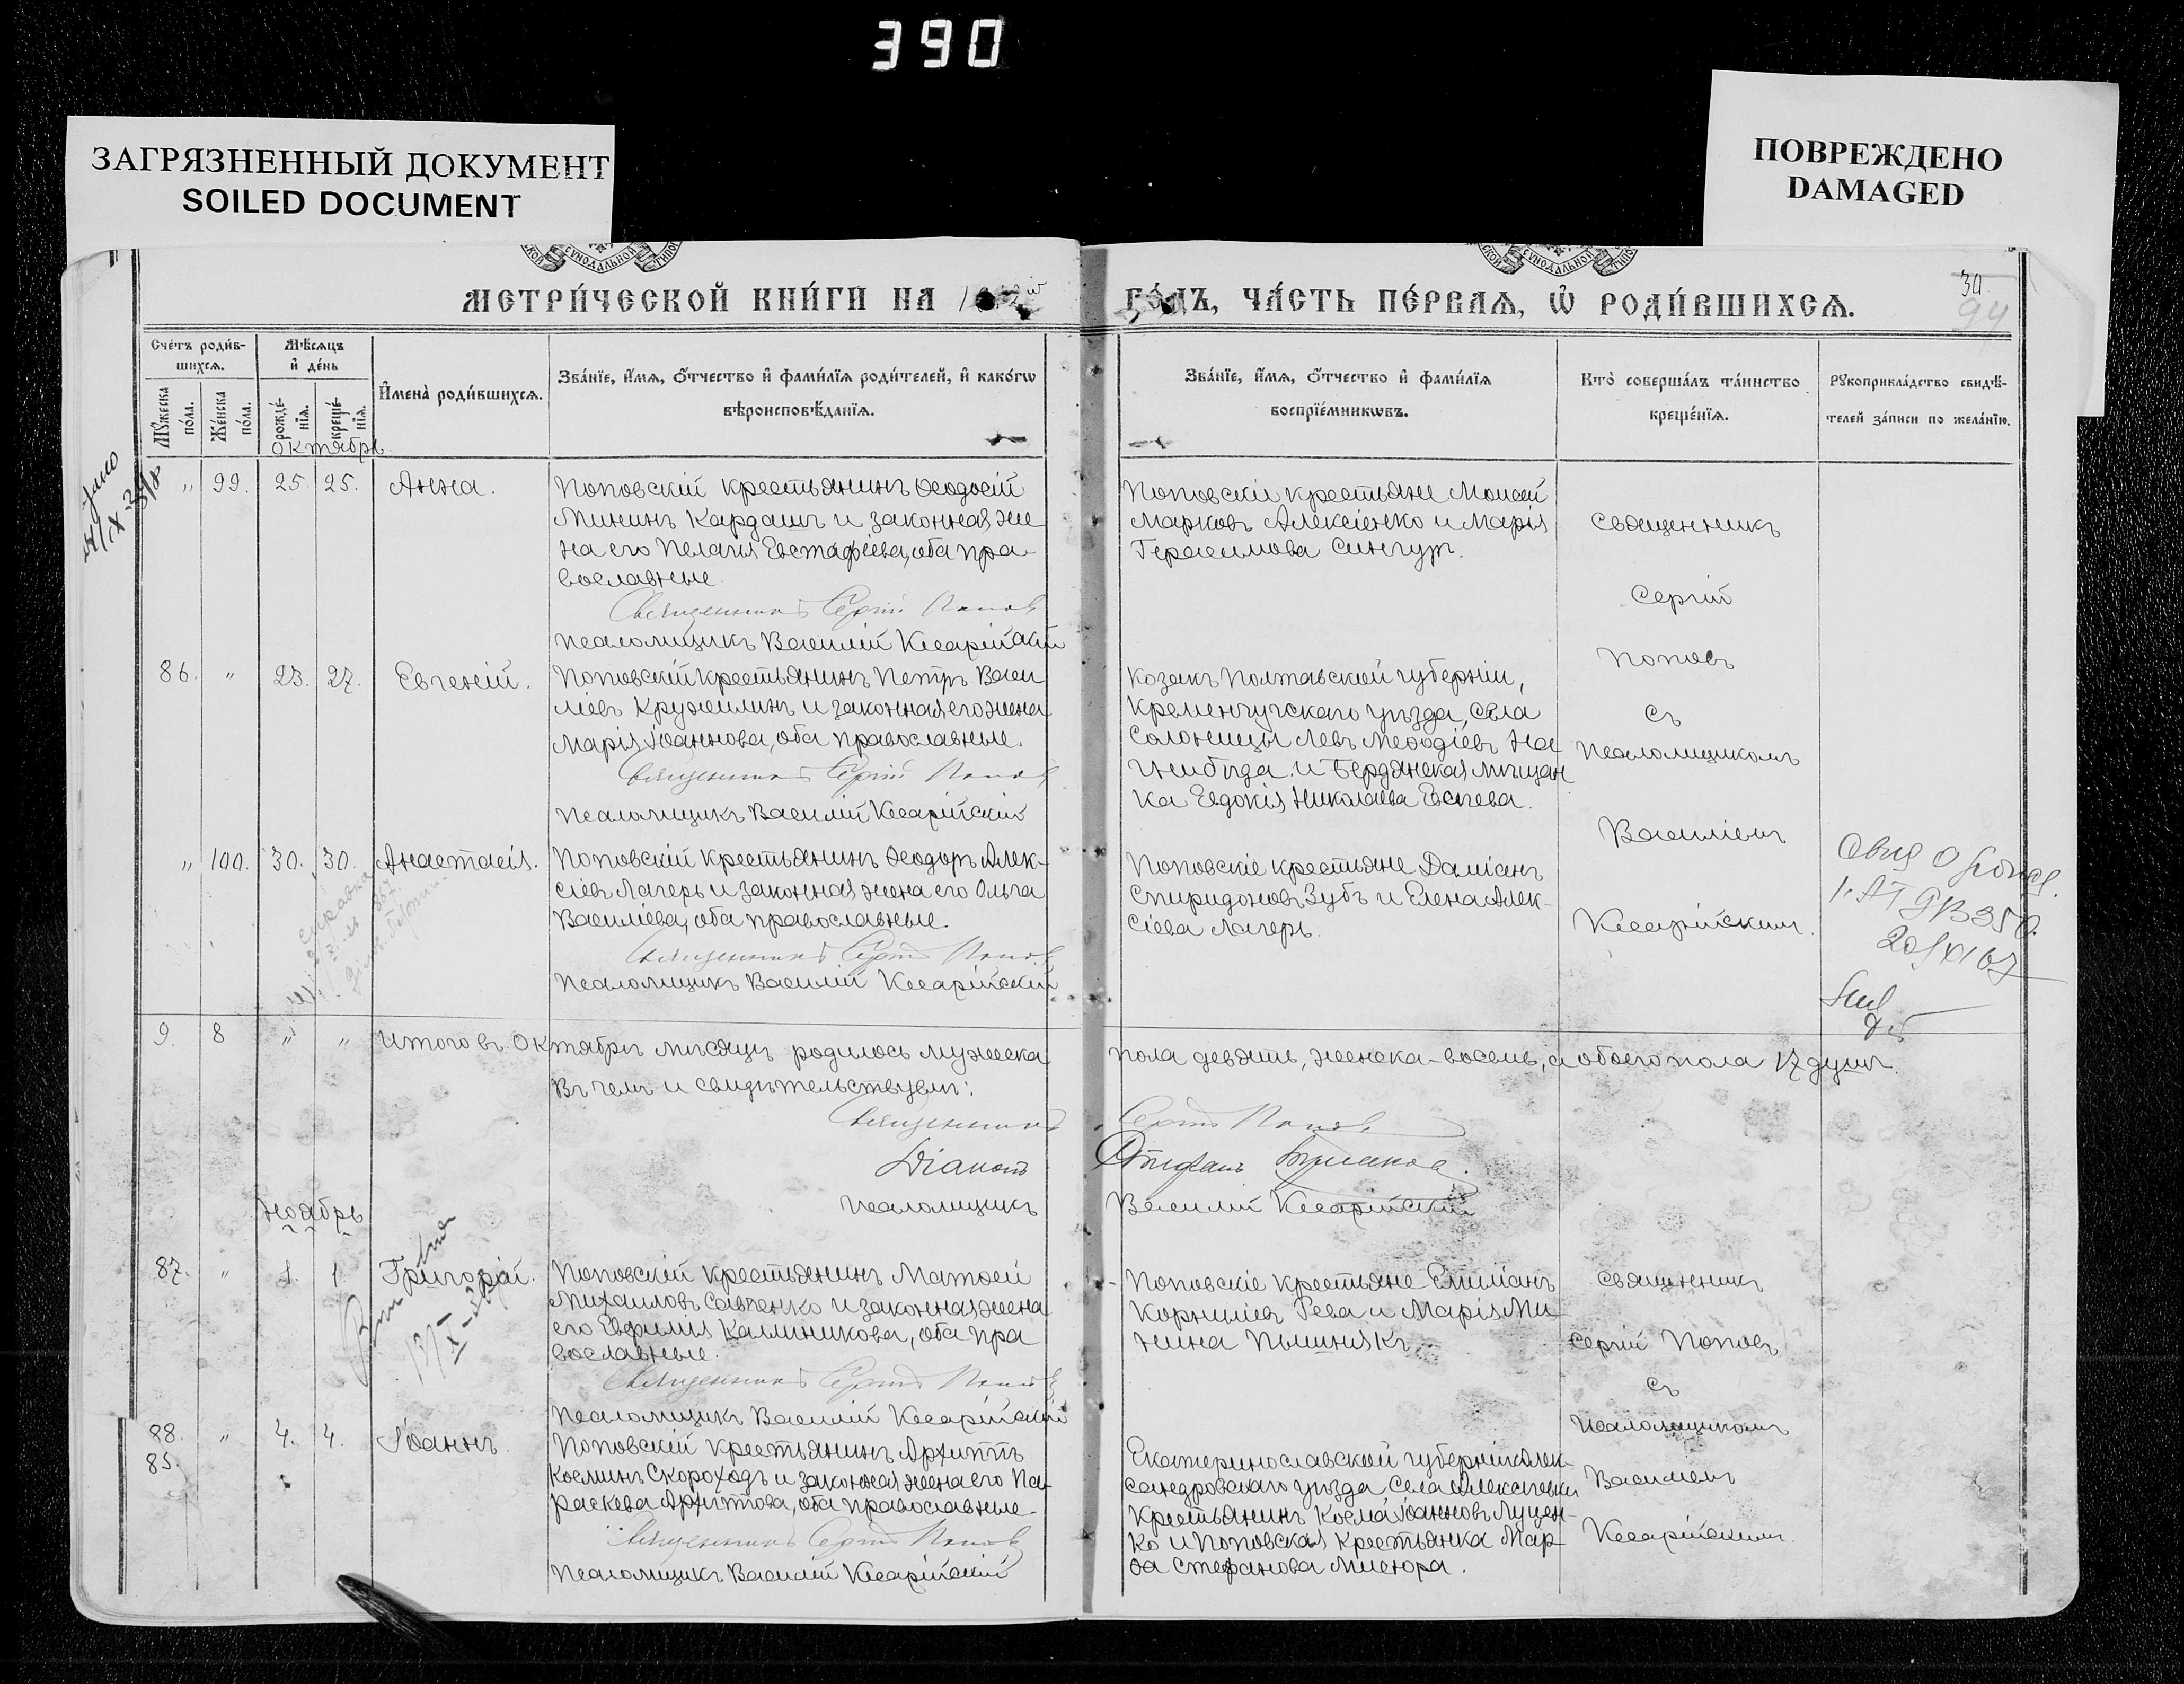 390
ЗАГРЯЗНЕННЫЙ ДОКУМЕНТ
SOILED DOCUMENT
ПОВРЕЖДЕНО
DAMAGED
МЕТРИ́ЧЕСКОЙ КНИ́ГИ НА
ГО́ДЪ, ЧА́СТЬ ПЕ́РВАѦ, Ѽ РОДИ́ВШИХСѦ.
30
94
Сче́тъ роди́в-
шихсѧ.
Мѣ́сѧцъ
и҆ де́нь
Мꙋ́жеска
по́ла.
Же́нска
по́ла.
рожде́-
нїѧ.
креще́-
нїѧ.
И҆мена̀ роди́вшихсѧ.
Зва́нїе, и҆́мѧ, ѻ҆́тчество и҆ фами́лїѧ роди́телей, и҆ како́гѡ
вѣроисповѣ́данїѧ.
Зва́нїе, и҆́мѧ, ѻ҆́тчество и҆ фами́лїѧ
воспрїе́мникѡвъ.
Кто̀ соверша́лъ та́инство
креще́нїѧ.
Рꙋкоприкла́дство свидѣ́-
телей за́писи по жела́нїю.
Октябрь
" 99. 25. 25. Анна.
Поповскій крестьянинъ Ѳеодосій
Мининъ Кардашъ и законная же
на его Пелагія Евстафіева, оба пра-
вославные.
Священникъ Сергій Поповъ
Псаломщикъ Василій Кесарійскій
Поповскіе крестьяне Моисей
Марковъ Алексіенко и Марія
Герасимова Сингур.
Священникъ
Сергій
Поповъ
съ
Псаломщикомъ
Василіемъ
Кесарійскимъ.
86. " 23. 27. Евгеній.
Поповскій крестьянинъ Петръ Васи
ліевъ Кружилинъ и законная его жена
Марія Іоаннова, оба православные.
Священникъ Сергій Поповъ
Псаломщикъ Василій Кесарійскій
Козакъ Полтавской губерніи,
Кременчугскаго уѣзда, села
Солоницы Левъ Меѳодіевъ На
гнибида и Бердянская мѣщан
ка Евдокія Николаева Евсѣева.
" 100. 30. 30. Анастасія.
Поповскій крестьянинъ Ѳеодоръ Алек-
сіевъ Лагерь и законная жена его Ольга
Василіева, оба православные.
Священникъ Сергій Поповъ
Псаломщикъ Василій Кесарійскій
Поповскіе крестьяне Даміанъ
Спиридоновъ Зубъ и Елена Алек-
сіева Лагерь.
9. 8 " " Итого въ Октябрѣ мѣсяцѣ родилось мужеска
пола девять, женска-восемь, а обоего пола 17 душъ.
Въ чемъ и свидѣтельствуемъ:
Священникъ Сергій Поповъ
Діаконъ
Псаломщикъ Василій Кесарійскій
Ноябрь
87. " 1. 1. Григорій.
Поповскій крестьянинъ Матѳей
Михаиловъ Савченко и законная жена
его Евфимія Каллиникова, оба пра
вославные.
Священникъ Сергій Поповъ
Псаломщикъ Василій Кесарійскій
Поповскіе крестьяне Емиліанъ
Корниліевъ Рева и Марія Ми
нина Пышнякъ.
Священникъ
Сергій Поповъ
съ
Псаломщикомъ
Василіемъ
Кесарійскимъ.
88. " 4. 4. Іоаннъ
85.
Поповскій крестьянинъ Архиппъ
Косминъ Скороходъ и законная жена его Па-
раскева Архиппова, оба православные.
Священникъ Сергій Поповъ
Псаломщикъ Василій Кесарійскій
Екатеринославской губерніи Алек-
сандровскаго уѣзда села Алексѣевки
крестьянинъ Косма Іоанновъ Луцен-
ко и Поповская крестьянка Мар-
ѳа Стефанова Мисюра.